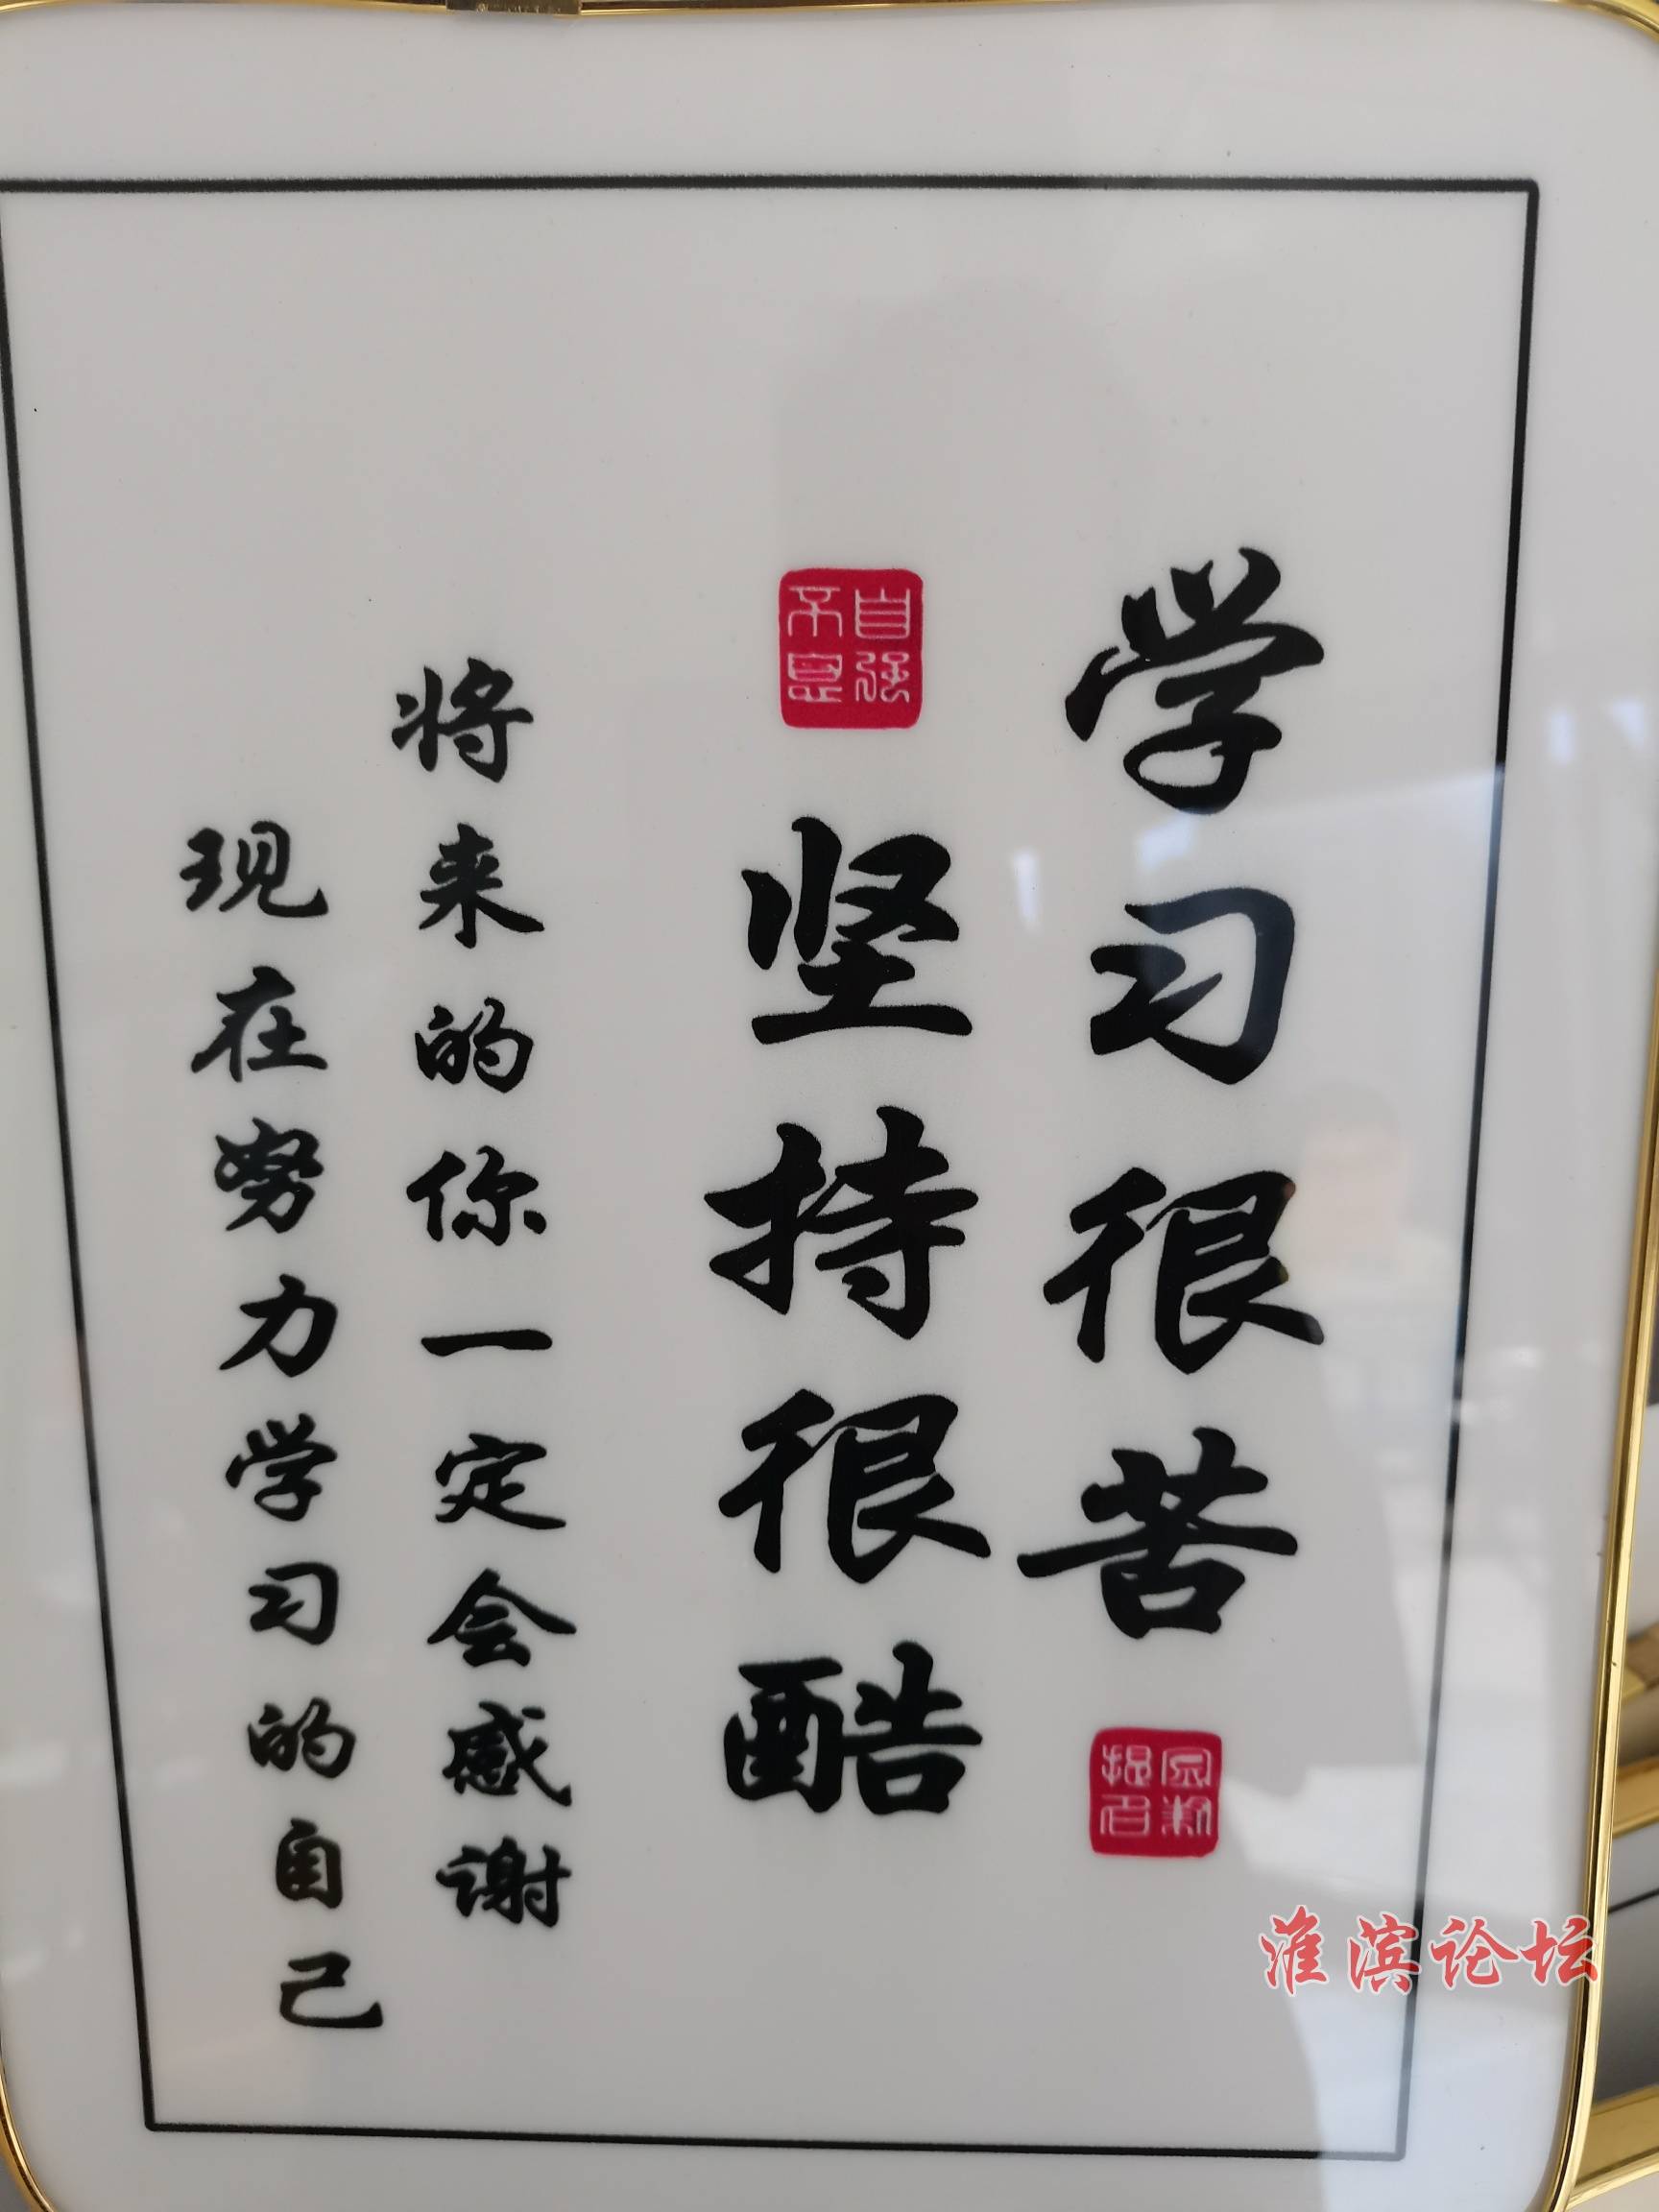 学习很苦
自强不息
坚持很酷
将来的你一定会感谢
现在努力学习的自己
淮滨论坛